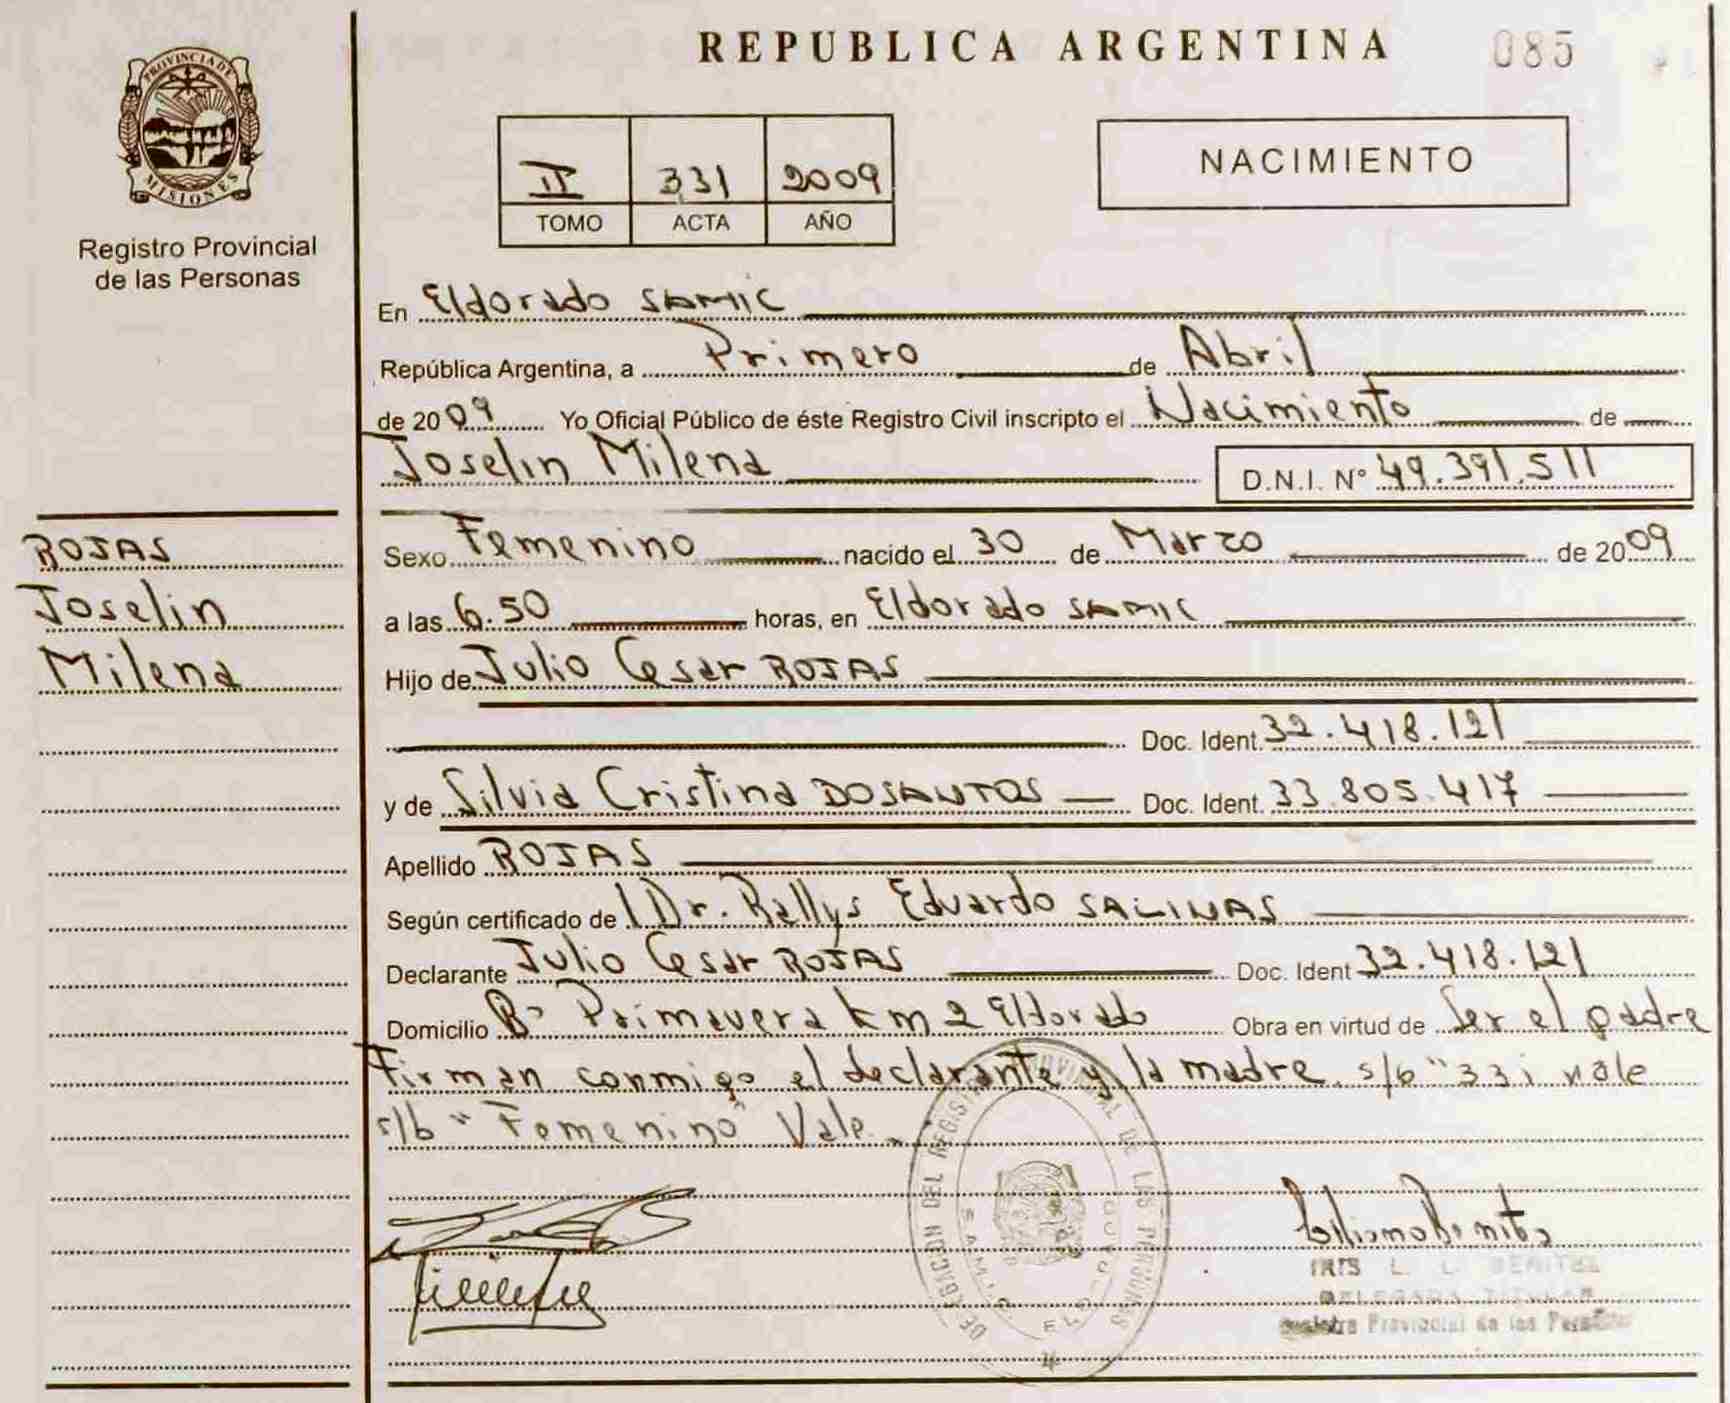 REPUBLICA ARGENTINA 085
PROVINCIA DE
MISIONES
Registro Provincial
de las Personas
II 331 2009
TOMO ACTA AÑO
NACIMIENTO
En Eldorado SAMIC
República Argentina, a Primero de Abril
de 2009 Yo Oficial Público de éste Registro Civil inscripto el Nacimiento de
Joselin Milena D.N.I. Nº 49.391.511
ROJAS
Joselin
Milena
Sexo Femenino nacido el 30 de Marzo de 2009
a las 6.50 horas, en Eldorado SAMIC
Hijo de Julio Cesar ROJAS
Doc. Ident. 32.418.121
y de Silvia Cristina DOSANTOS Doc. Ident. 33.805.417
Apellido ROJAS
Según certificado de l Dr. Rallys Eduardo SALINAS
Declarante Julio Cesar ROJAS Doc. Ident 32.418.121
Domicilio Bº Primavera Km 2 Eldorado Obra en virtud de Ser el padre
Firman conmigo el declarante y la madre s/b "331 vale
s/b "Femenino" Vale.
DELEGACION DEL REGISTRO PROVINCIAL DE LAS PERSONAS
IRIS L. L. BENITEZ
DELEGADA TITULAR
Registro Provincial de las Personas